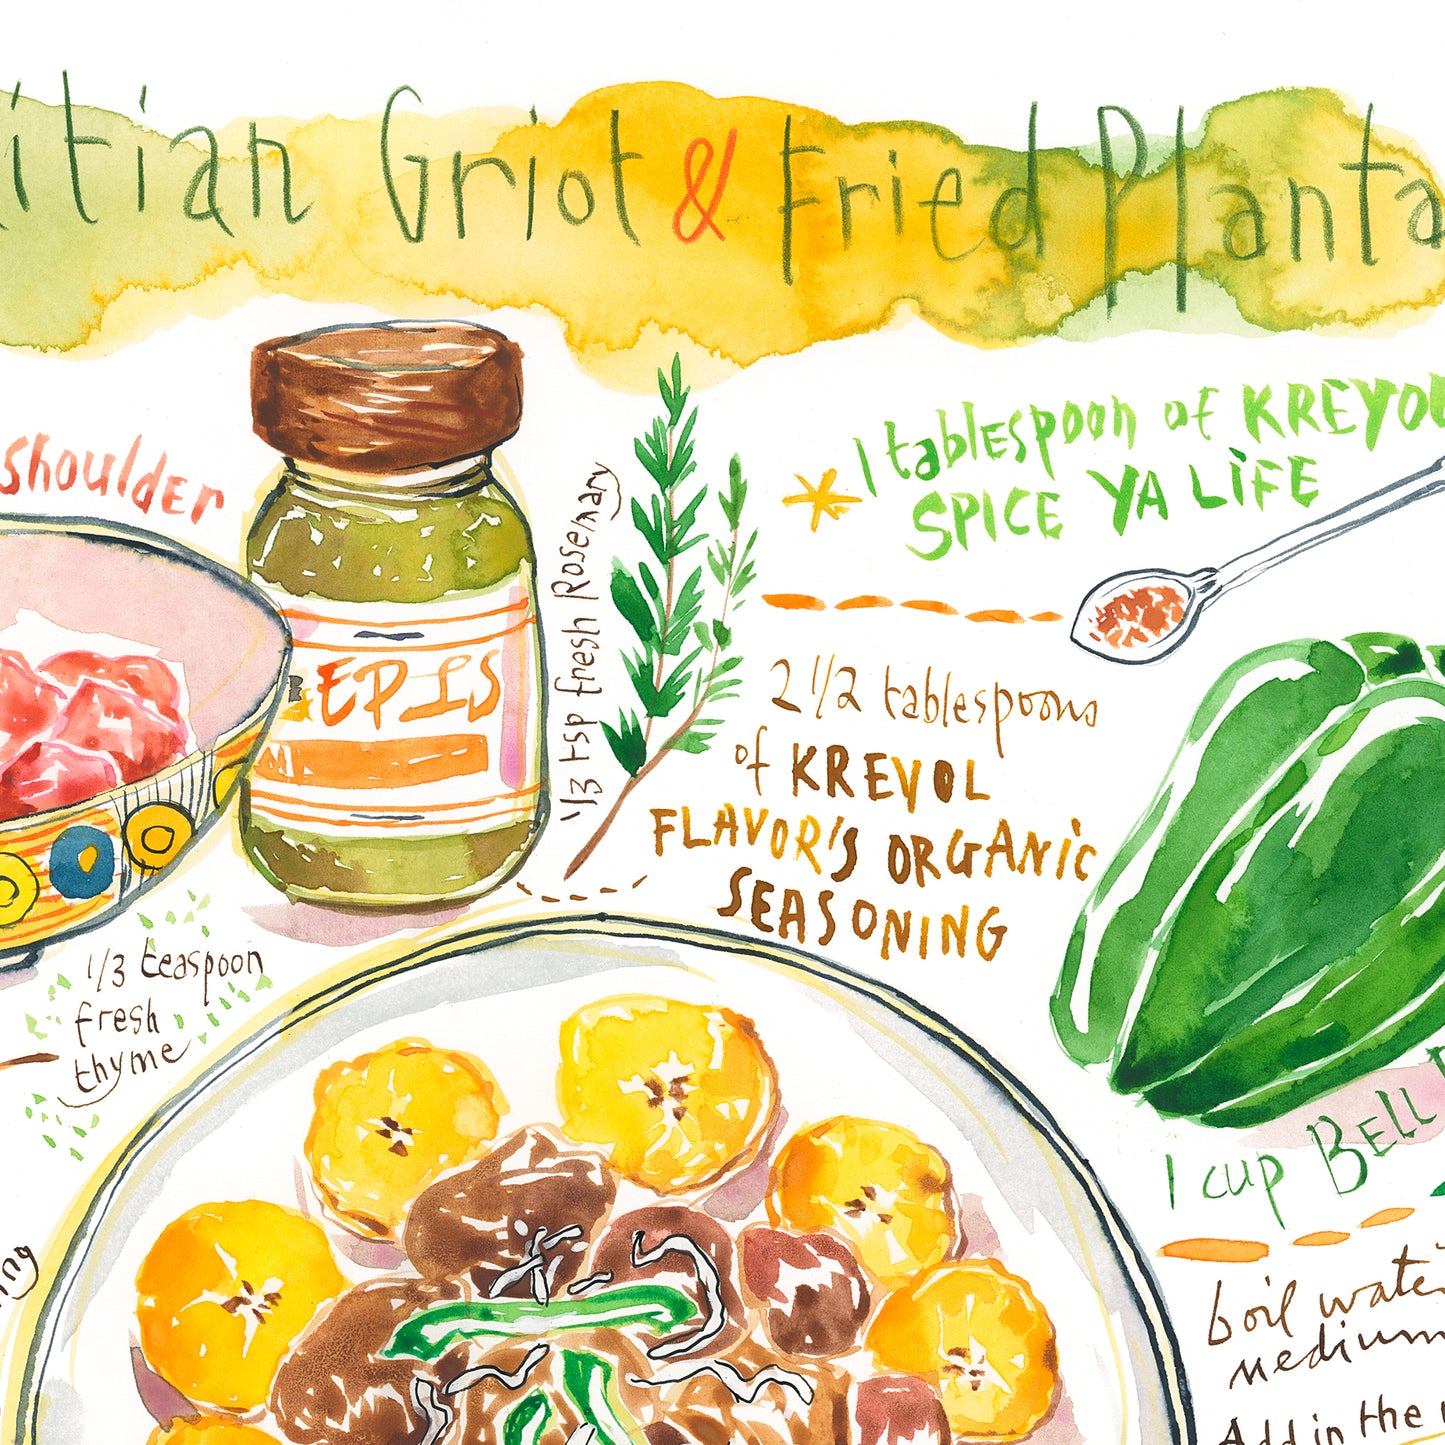 itian Griot & Fried Planta
shoulder
EPIS
1/3 tsp fresh Rosemary
* 1 tablespoon of KREYOL
SPICE YA LiFE
2 1/2 tablespoons
of KREYOL
FLAVOR'S ORGANiC
SEASONING
1/3 teaspoon
fresh
thyme
1 cup BELL
ing
boil water
medium
Add in the